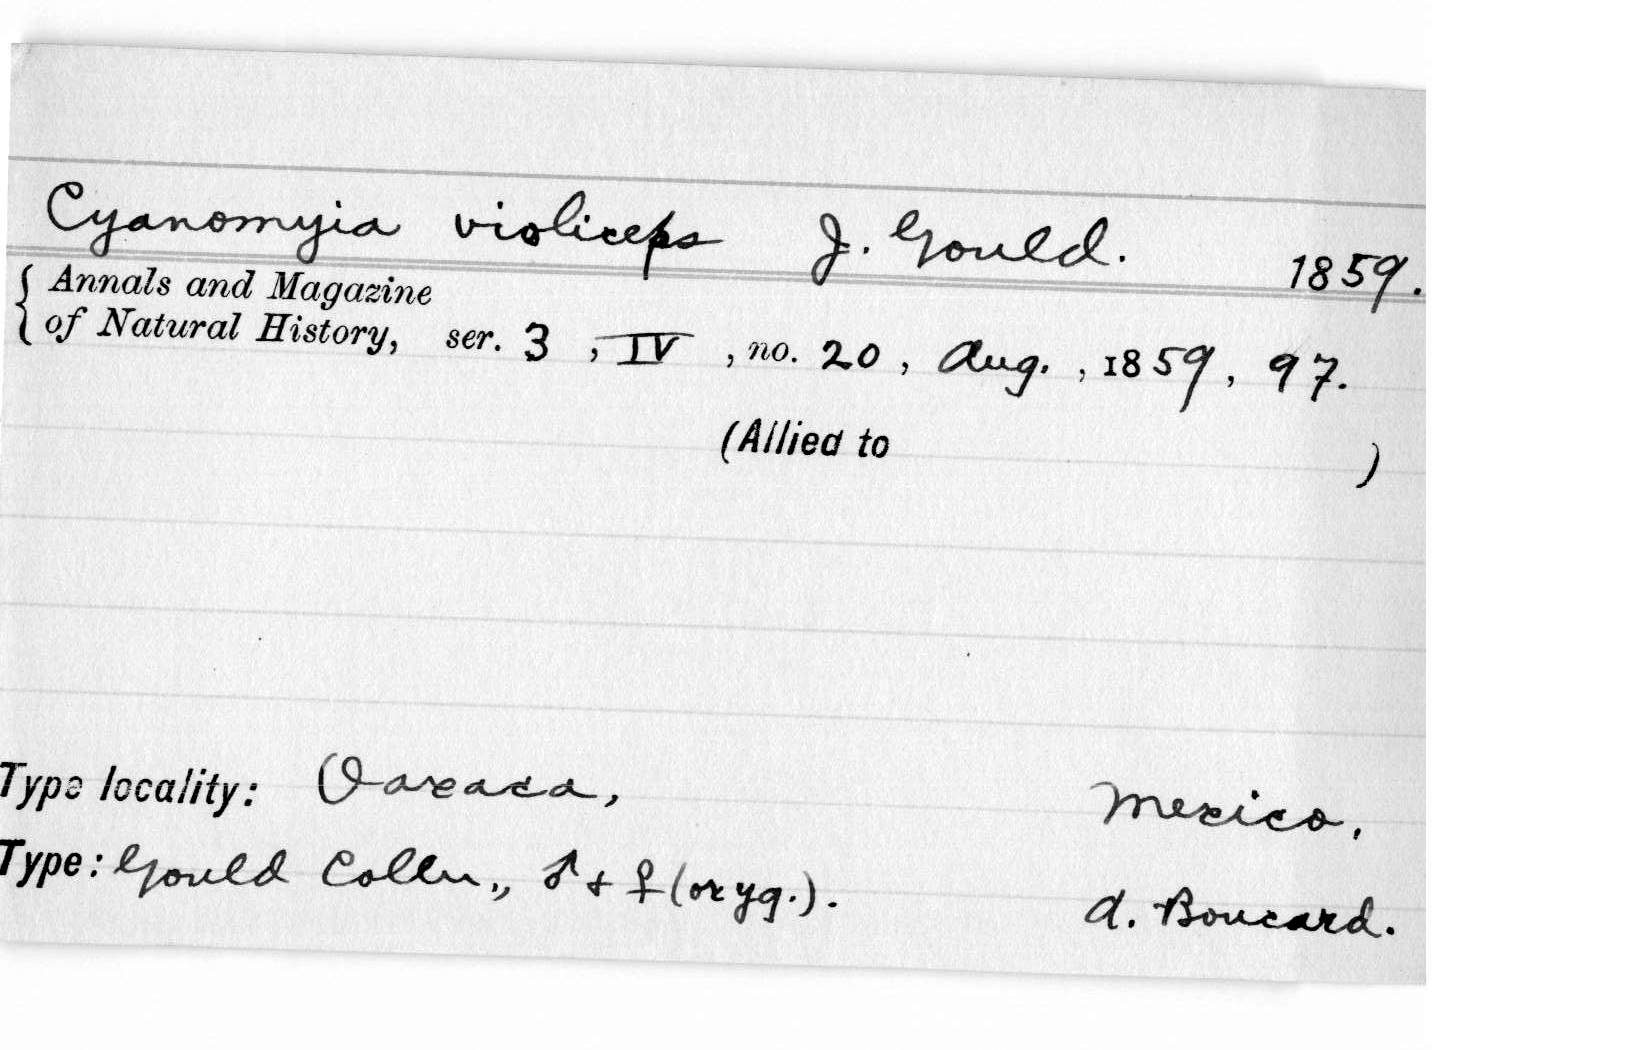 Cyanomyia violiceps J. Gould. 1859.
{ Annals and Magazine
of Natural History, ser. 3, IV, no. 20, Aug., 1859, 97.
(Allied to )
Type locality: Oaxaca, Mexico.
Type: Gould Colln., ♂ + ♀ (or yg.). A. Boucard.